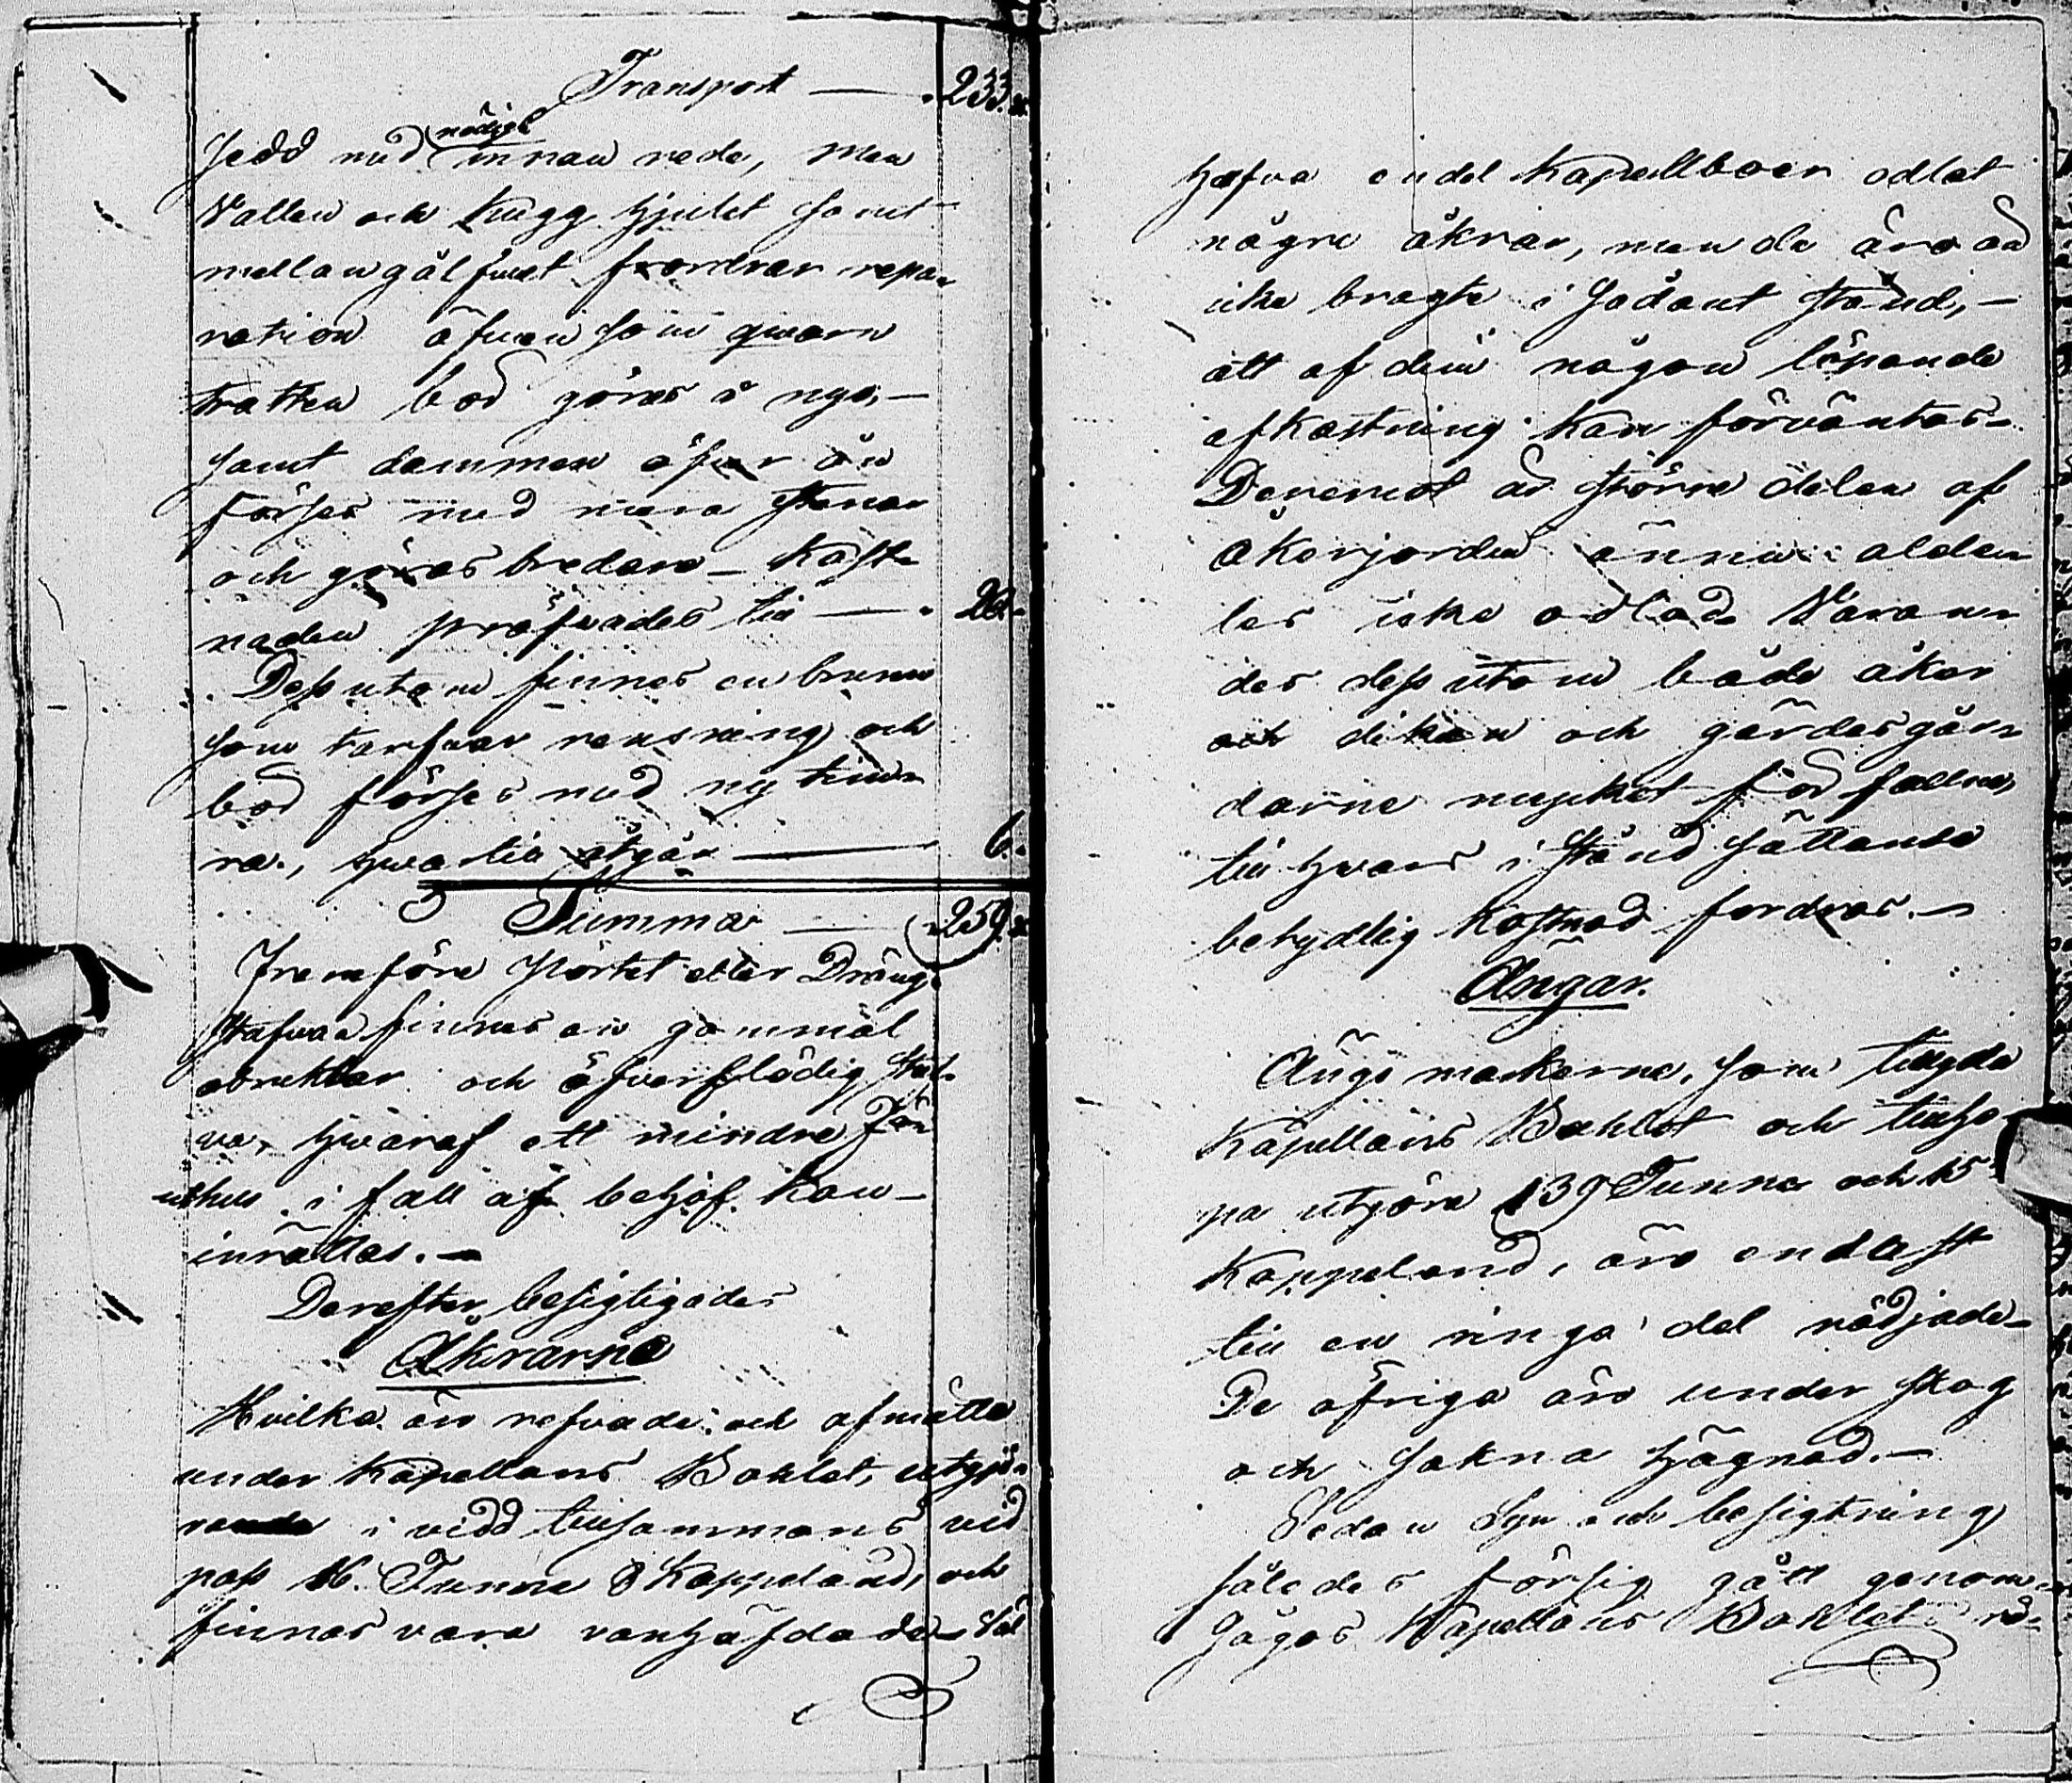 Transport — 233.
sedd med nödigt innan rede, men
Vallen och Kugg hjulet samt
mellangålfvet fordrar repa-
ration äfven som qvarn
tratten bör göras å nyo,—
samt dammen öfver ån
förses med mera stenar
och göras bredare – Kost-
naden pröfvades till — 20.
Dessutom finnes en brunn
som tarfvar rensning och
bör förses med ny tim-
ra, hvartill åtgår — 6.
Summa — 259.
Framföre Pörtet eller Dräng-
stufvan finnes en gammal
obrukbar och öfverflödig stu-
va, hvaraf ett mindre Får
uthus i fall af behof kan
inrättas.—
Derefter besigtigades
Åkrarne
Hvilka äro refvade och afmätta
under Kapellans Bohlet, utgjö-
rande i vidd tillsammans vid
pass 16. Tunne 8 Kappeland, och
finnas vara vanhäfdade. Väl
hafva endel Kapellboer odlat
någre åkrar, men de äro ei
icke bragte i sådant stånd,—
att af dem någon löpande
afkastning kan förväntas.
Deremot är större delen af
åkerjorden ännu alldeles
les icke odlad. Varan-
des dessutom både åker
och diken och gärdesgår-
darne mycket förfallne,
till hvars i stånd sättande
betydlig kostnad fordras.—
Ängar.
Ängs markerne, som tillydа
Kapellans Bohlet och tillho-
pa utgöra 139 Tunne och 15
Kappeland, äro endast
till en ringa del rödjade.
De öfriga äro under skog
och sakna hägnad.—
Sedan Syn och besigtning
således försig gått genom
Gåges Kapellans Bohlet